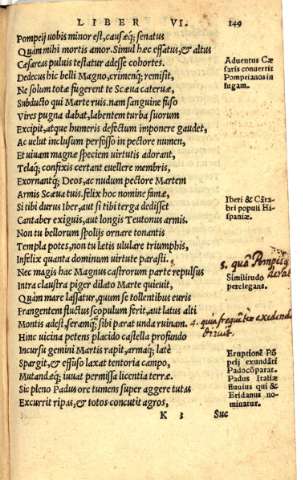 LIBER VI. 149
Pompeij uobis minor est, causæq; senatus
Quàm mihi mortis amor. Simul hæc effatus, & altus
Cæsareas puluis testatur adesse cohortes.
Dedecus hic belli Magno, crimenq; remisit,
Ne solum totæ fugerent te Scæua cateruæ,
Subducto qui Marte ruis. nam sanguine fuso
Vires pugna dabat, labentem turba suorum
Excipit, atque humeris defectum imponere gaudet,
Ac uelut inclusum perfosso in pectore numen,
Et uiuam magnæ speciem uirtutis adorant,
Telaq; confixis certant euellere membris,
Exornantq; Deos, ac nudum pectore Martem
Armis Scæua tuis. felix hoc nomine famæ,
Si tibi durus Iber, aut si tibi terga dedisset
Cantaber exiguis, aut longis Teutonus armis.
Non tu bellorum spolijs ornare tonantis
Templa potes, non tu lætis ululare triumphis,
Infelix quanta dominum uirtute parasti.
Nec magis hac Magnus castrorum parte repulsus
Intra claustra piger dilato Marte quieuit,
Quàm mare lassatur, quum se tollentibus euris
Frangentem fluctus scopulum ferit, aut latus alti
Montis adest, seramq; sibi parat unda ruinam.
Hinc uicina petens placido castella profundo
Incursu gemini Martis rapit, armaq; latè
Spargit, & effuso laxat tentoria campo,
Mutandæq; iuuat permissa licentia terræ.
Sic pleno Padus ore tumens super aggere tutas
Excurrit ripas, & totos concutit agros,
K 3 Suc
Aduentus Cæ
saris conuertit
Pompeianos in
fugam.
Iberi & Cāta
bri populi Hi
spaniæ.
Similitudo
perelegans.
Eruptionē Pō
peij exundāti
Pado cōparat.
Padus Italiæ
fluuius qui &
Eridanus no-
minatur.